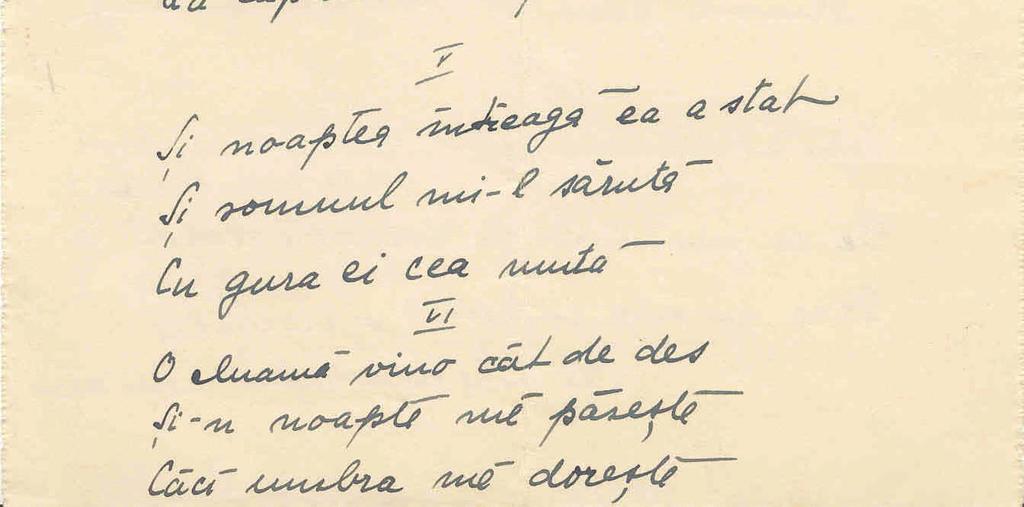 V
Și noaptea întreagă ea a stat
Și somnul mi-l sărută
Cu gura ei cea mută
VI
O mamă vino cât de des
Și-n noapte mă păsește
Căci umbra mă dorește